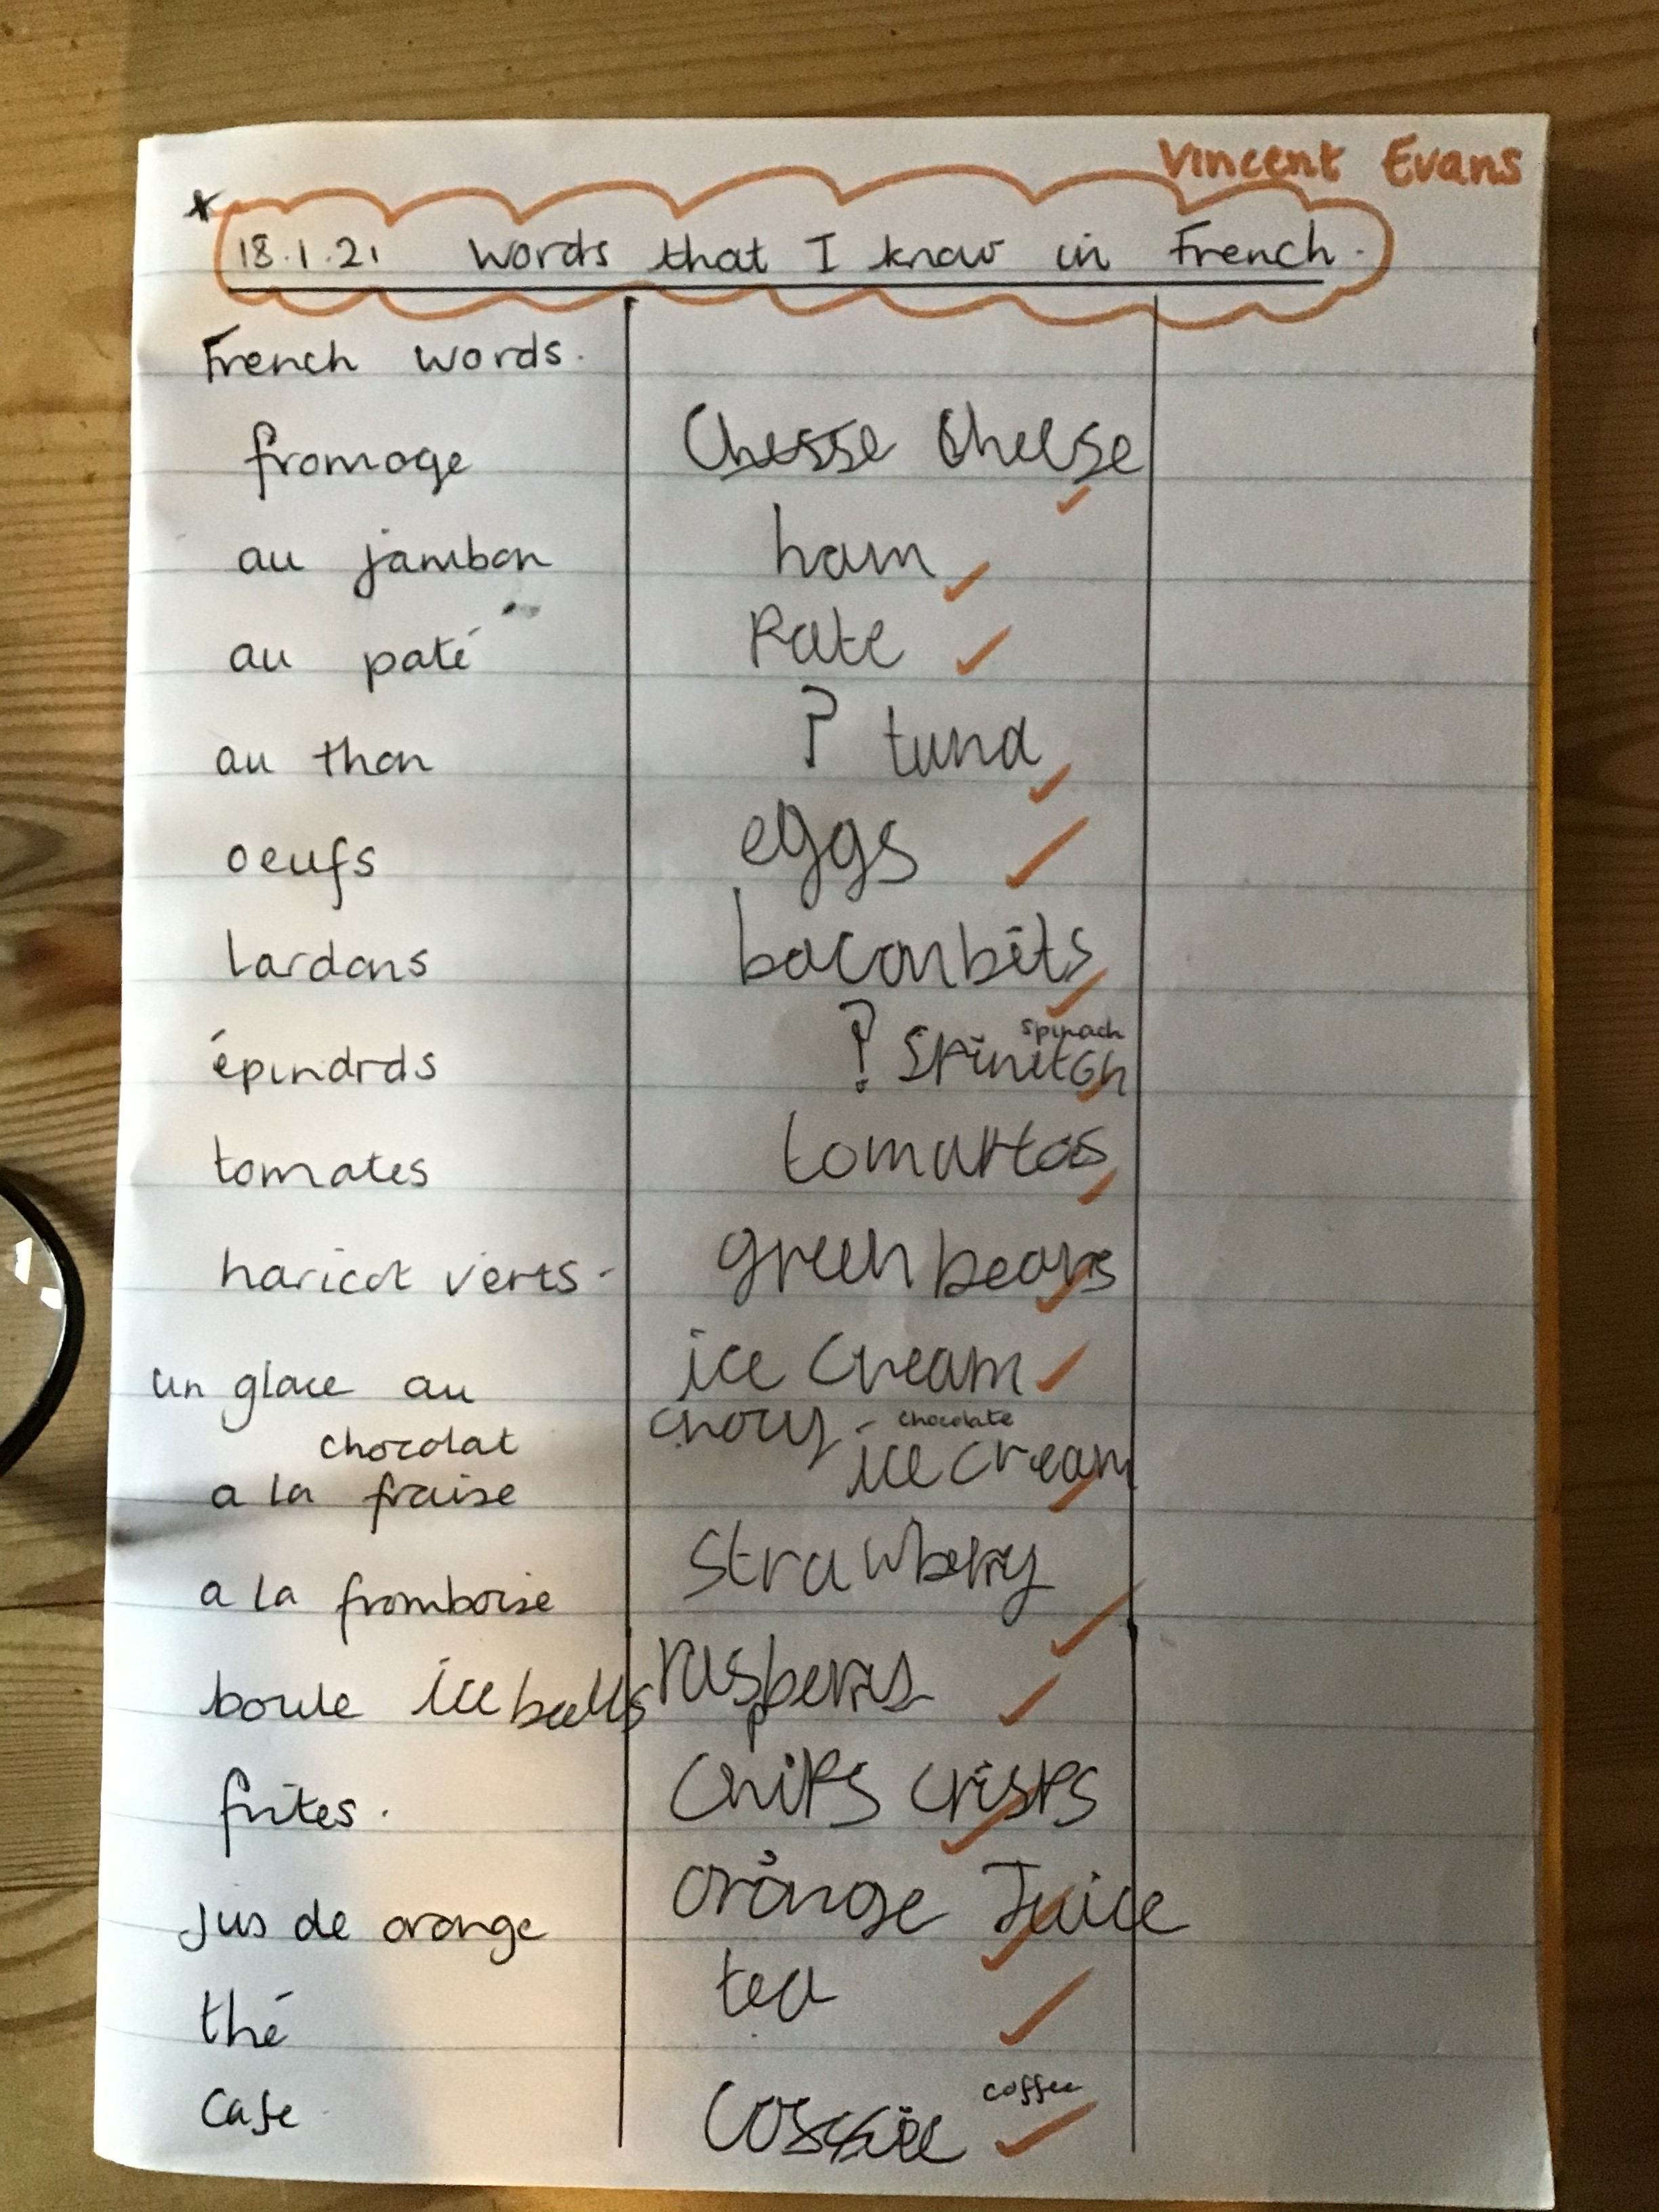 Vincent Evans
18.1.21 Words that I know in French.
French words.
fromage Chesse Cheese
au jambon ham
au paté Pate
au thon ? tuna
oeufs eggs
lardons baconbits
épinards ? Spinitch spinach
tomates tomartos
haricot verts. green beans
un glace au ice cream
chocolat chocy chocolate ice cream
a la fraise
a la framboise strawberry
boule ice balls
frites. chips crisps
jus de orange orange Juice
thé tea
Cafe coffee